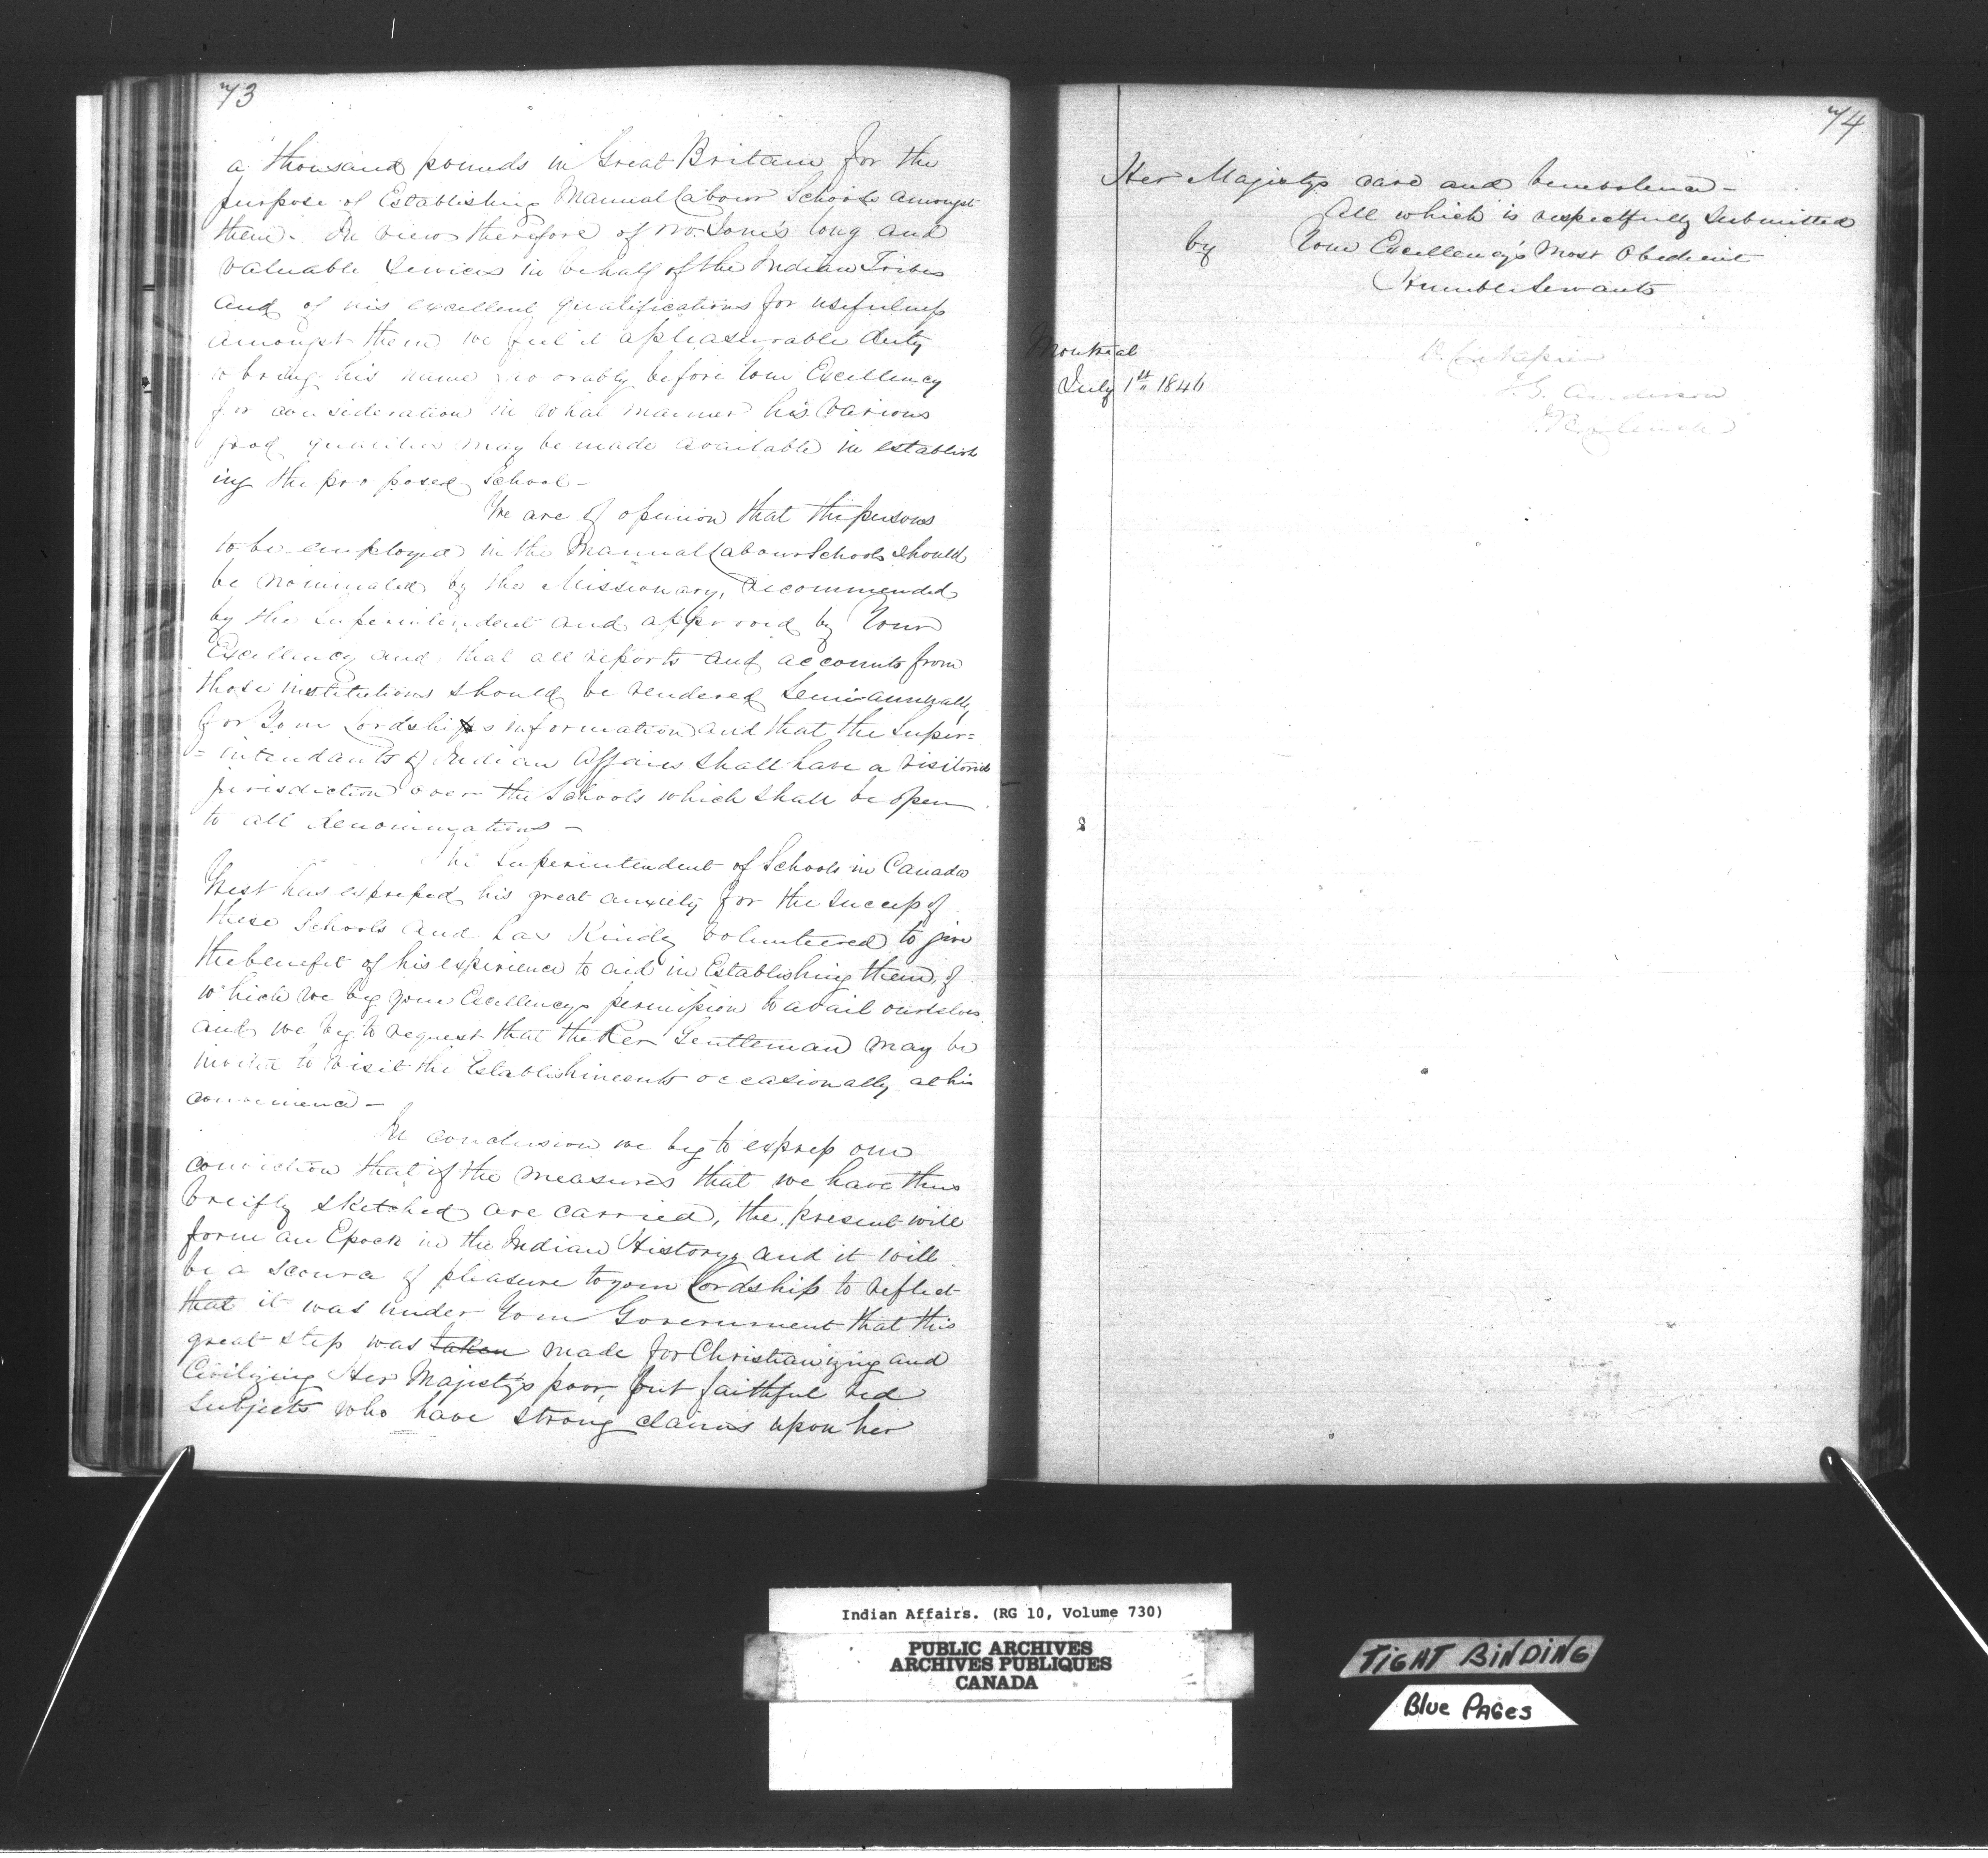 73
a thousand pounds in Great Britain for the
purpose of Establishing Manual Labour Schools amongst
them. In view therefore of Mr Jones's long and
valuable services in behalf of the Indian Tribes
and of his excellent qualifications for usefulness
amongst them we feel it a pleasurable duty
to bring his name favorably before Your Excellency
for consideration in what manner his various
good qualities may be made available in establish
ing the proposed School -
We are of opinion that the persons
to be employed in the Manual Labour Schools should
be nominated by the Missionary, recommended
by the Superintendent and approved by Your
Excellency and that all reports and accounts from
those institutions should be rendered Semi-annually
for Your Lordships information and that the Super=
=intendants of Indian Affairs shall have a visitorial
jurisdiction over the Schools which shall be open
to all denominations -
The Superintendent of Schools in Canada
West has expressed his great anxiety for the success of
these Schools and has kindly volunteered to give
the benefit of his experience to aid in Establishing them, of
which we beg your Excellencys permission to avail ourselves
and we beg to request that the Rev Gentleman may be
invited to visit the Establishments occasionally at his
convenience -
In conclusion we beg to express our
conviction that if the measures that we have thus
breifly sketched are carried, the present will
form an Epoch in the Indian History, and it will
be a source of pleasure to your Lordship to reflect
that it was under Your Government that this
great step was taken made for Christianizing and
Civilizing Her Majesty's poor, but faithful red
Subjects who have strong claims upon her
74
Her Majestys care and benevolence -
All which is respectfully submitted
by Your Excellency's Most Obedient
Humble Servants
Montreal
July 1st 1846
T.G. Anderson
Indian Affairs. (RG 10, Volume 730)
PUBLIC ARCHIVES
ARCHIVES PUBLIQUES
CANADA
TIGHT BINDING
Blue PAGes